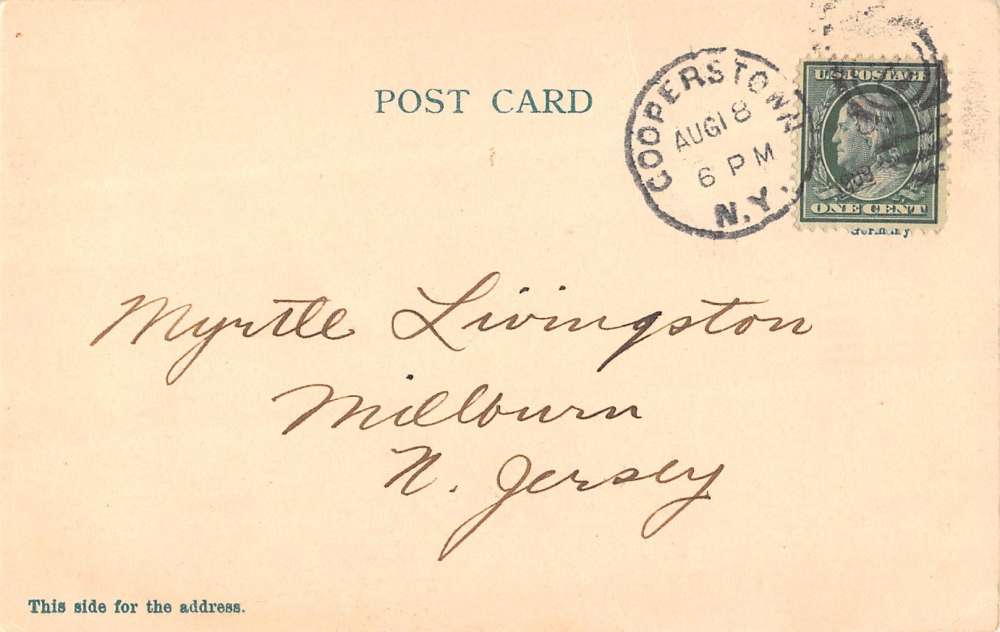 POST CARD
COOPERSTOWN
AUG 18
6 PM
N.Y.
U.S. POSTAGE
ONE CENT
Germany
Myrtle Livingston
Milburn
N. Jersey
This side for the address.